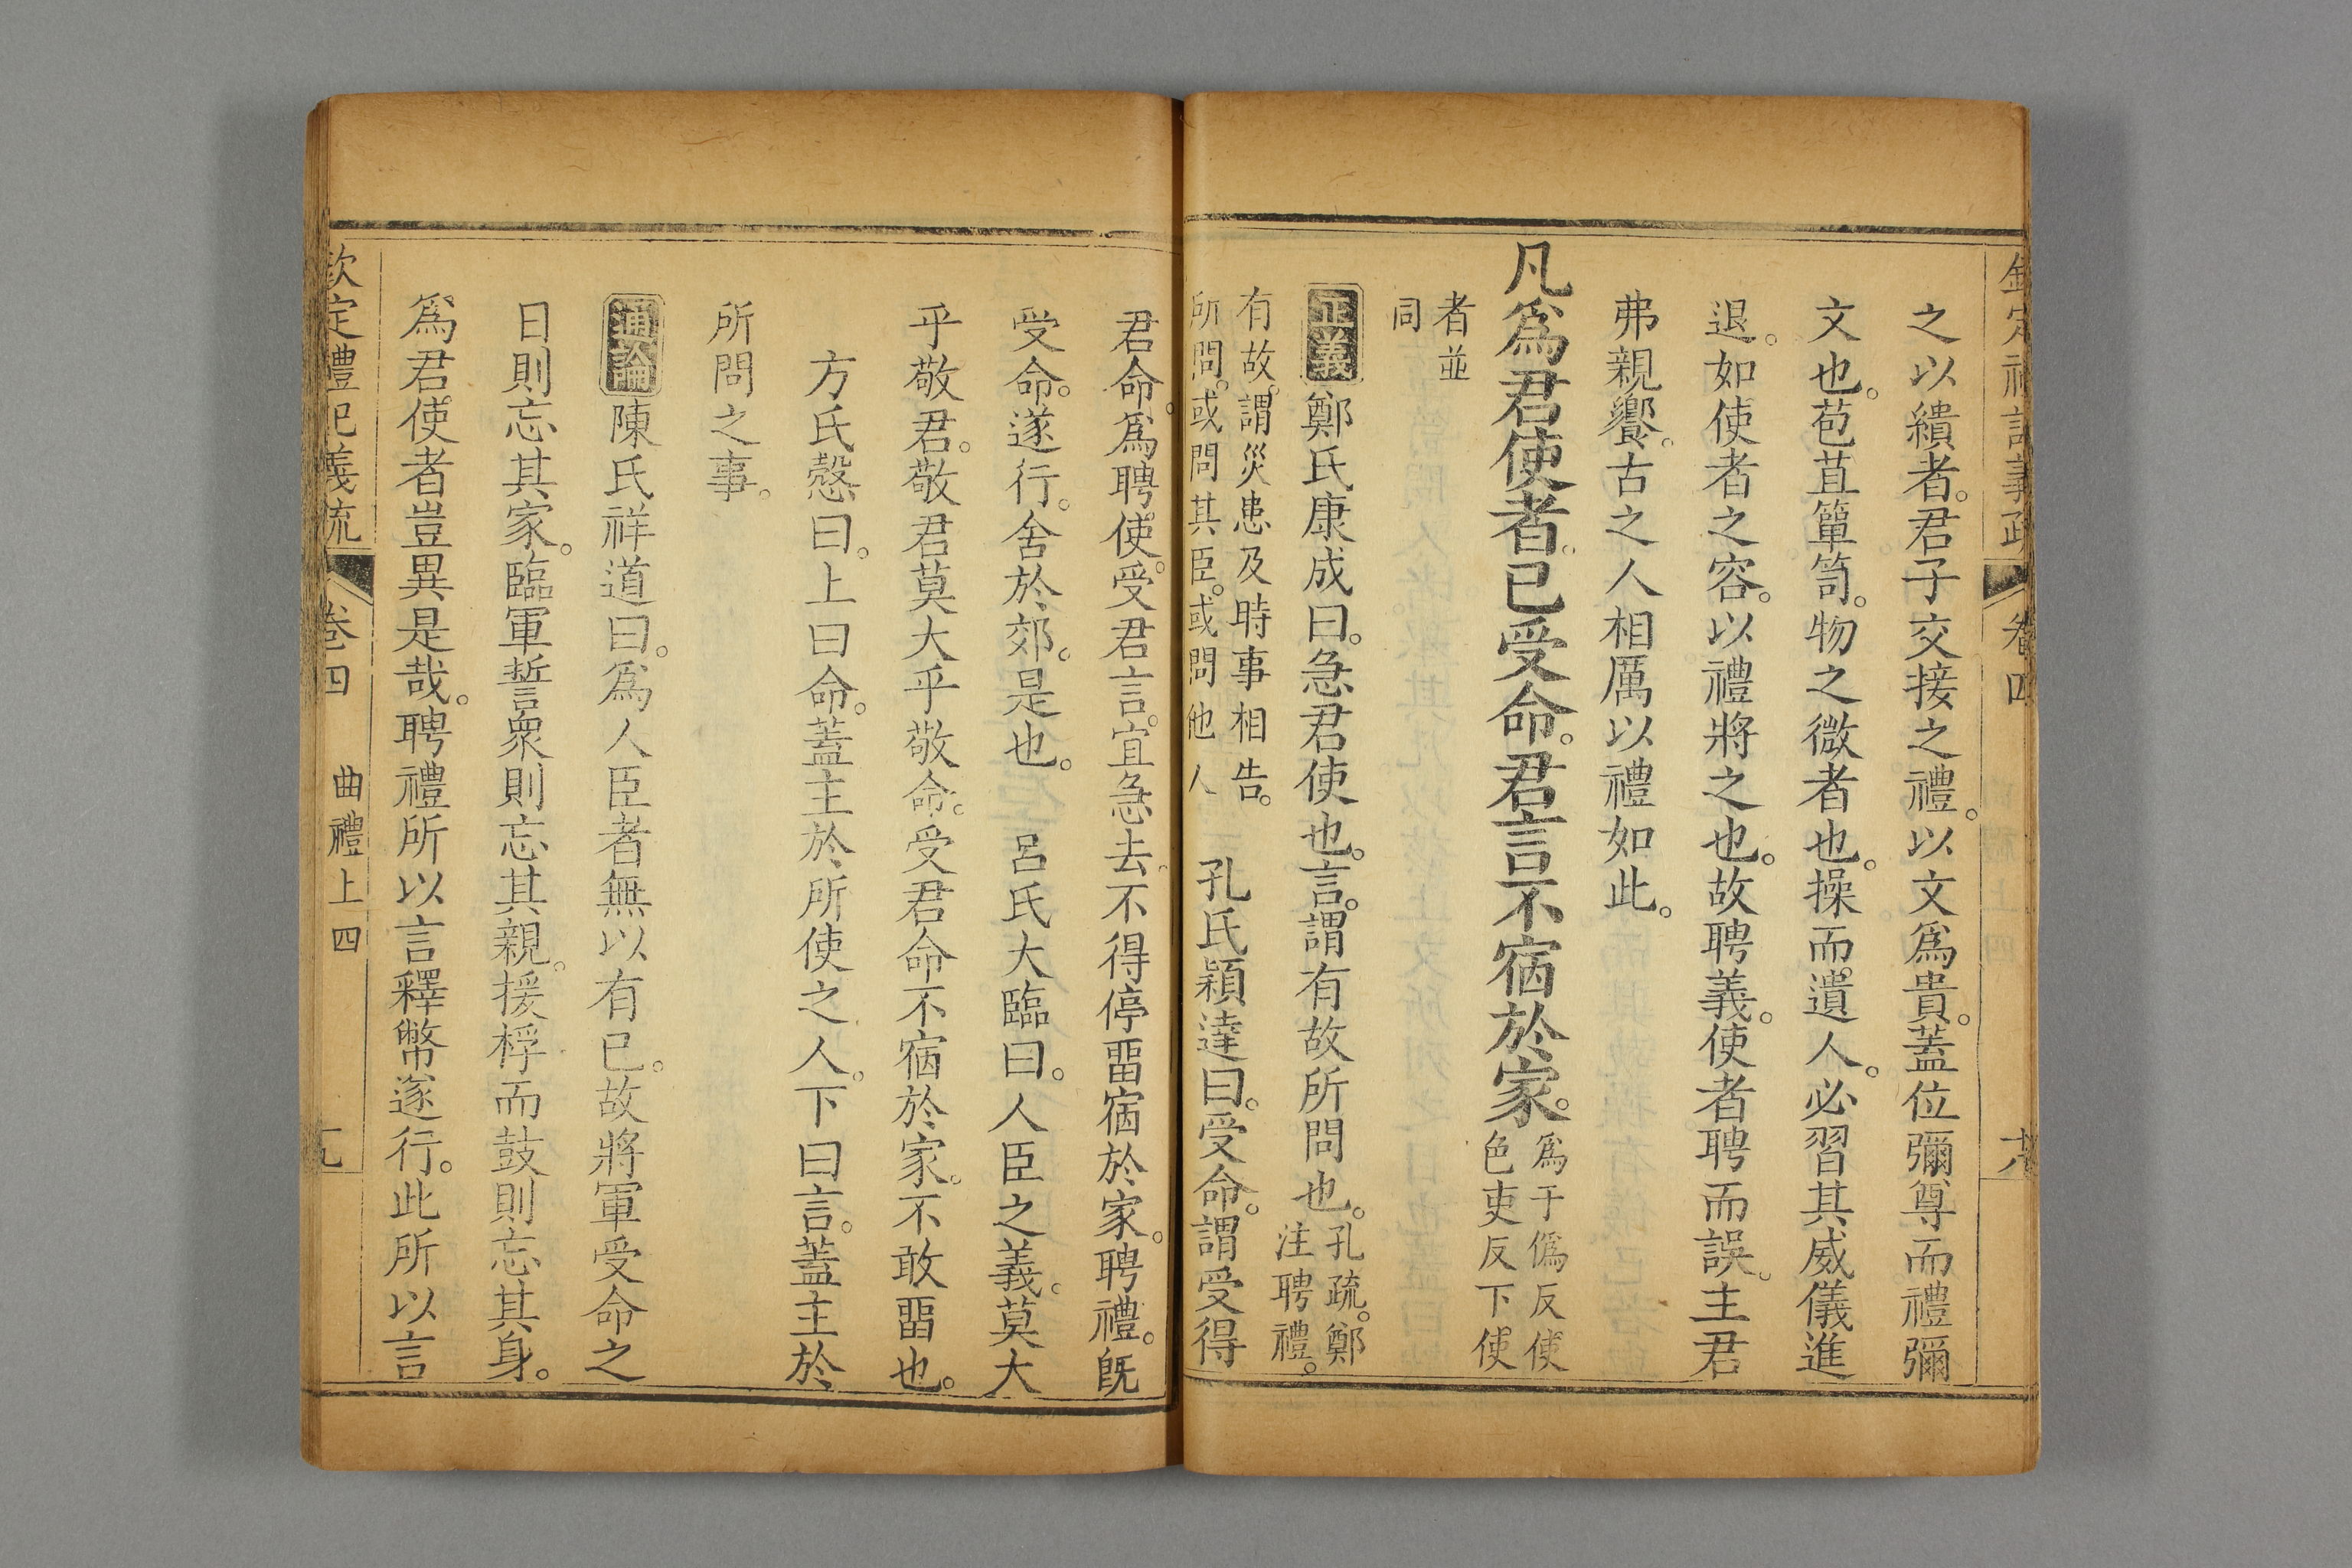 欽定禮記義疏 卷四
之以繢者。君子交接之禮。以文爲貴。蓋位彌尊而禮彌
文也。苞苴簞笥。物之微者也。操而遺人。必習其威儀進
退。如使者之容。以禮將之也。故聘義。使者聘而誤。主君
弗親饗。古之人相厲以禮如此。
凡爲君使者。已受命。君言不宿於家。爲于僞反使
色吏反下使
者並
同
正義鄭氏康成曰。急君使也。言。謂有故所問也。孔疏。鄭
注聘禮。
有故。謂災患及時事相告。
所問。或問其臣。或問他人
孔氏穎達曰。受命。謂受得
君命。爲聘使。受君言。宜急去。不得停畱宿於家。聘禮。旣
受命。遂行。舍於郊。是也。 呂氏大臨曰。人臣之義。莫大
乎敬君。敬君莫大乎敬命。受君命不宿於家。不敢畱也。
方氏慤曰。上曰命。蓋主於所使之人。下曰言。蓋主於
所問之事。
通論陳氏祥道曰。爲人臣者無以有已。故將軍受命之
日則忘其家。臨軍誓衆則忘其親。援桴而鼓則忘其身。
爲君使者豈異是哉。聘禮所以言釋幣遂行。此所以言
欽定禮記義疏 卷四 曲禮上四